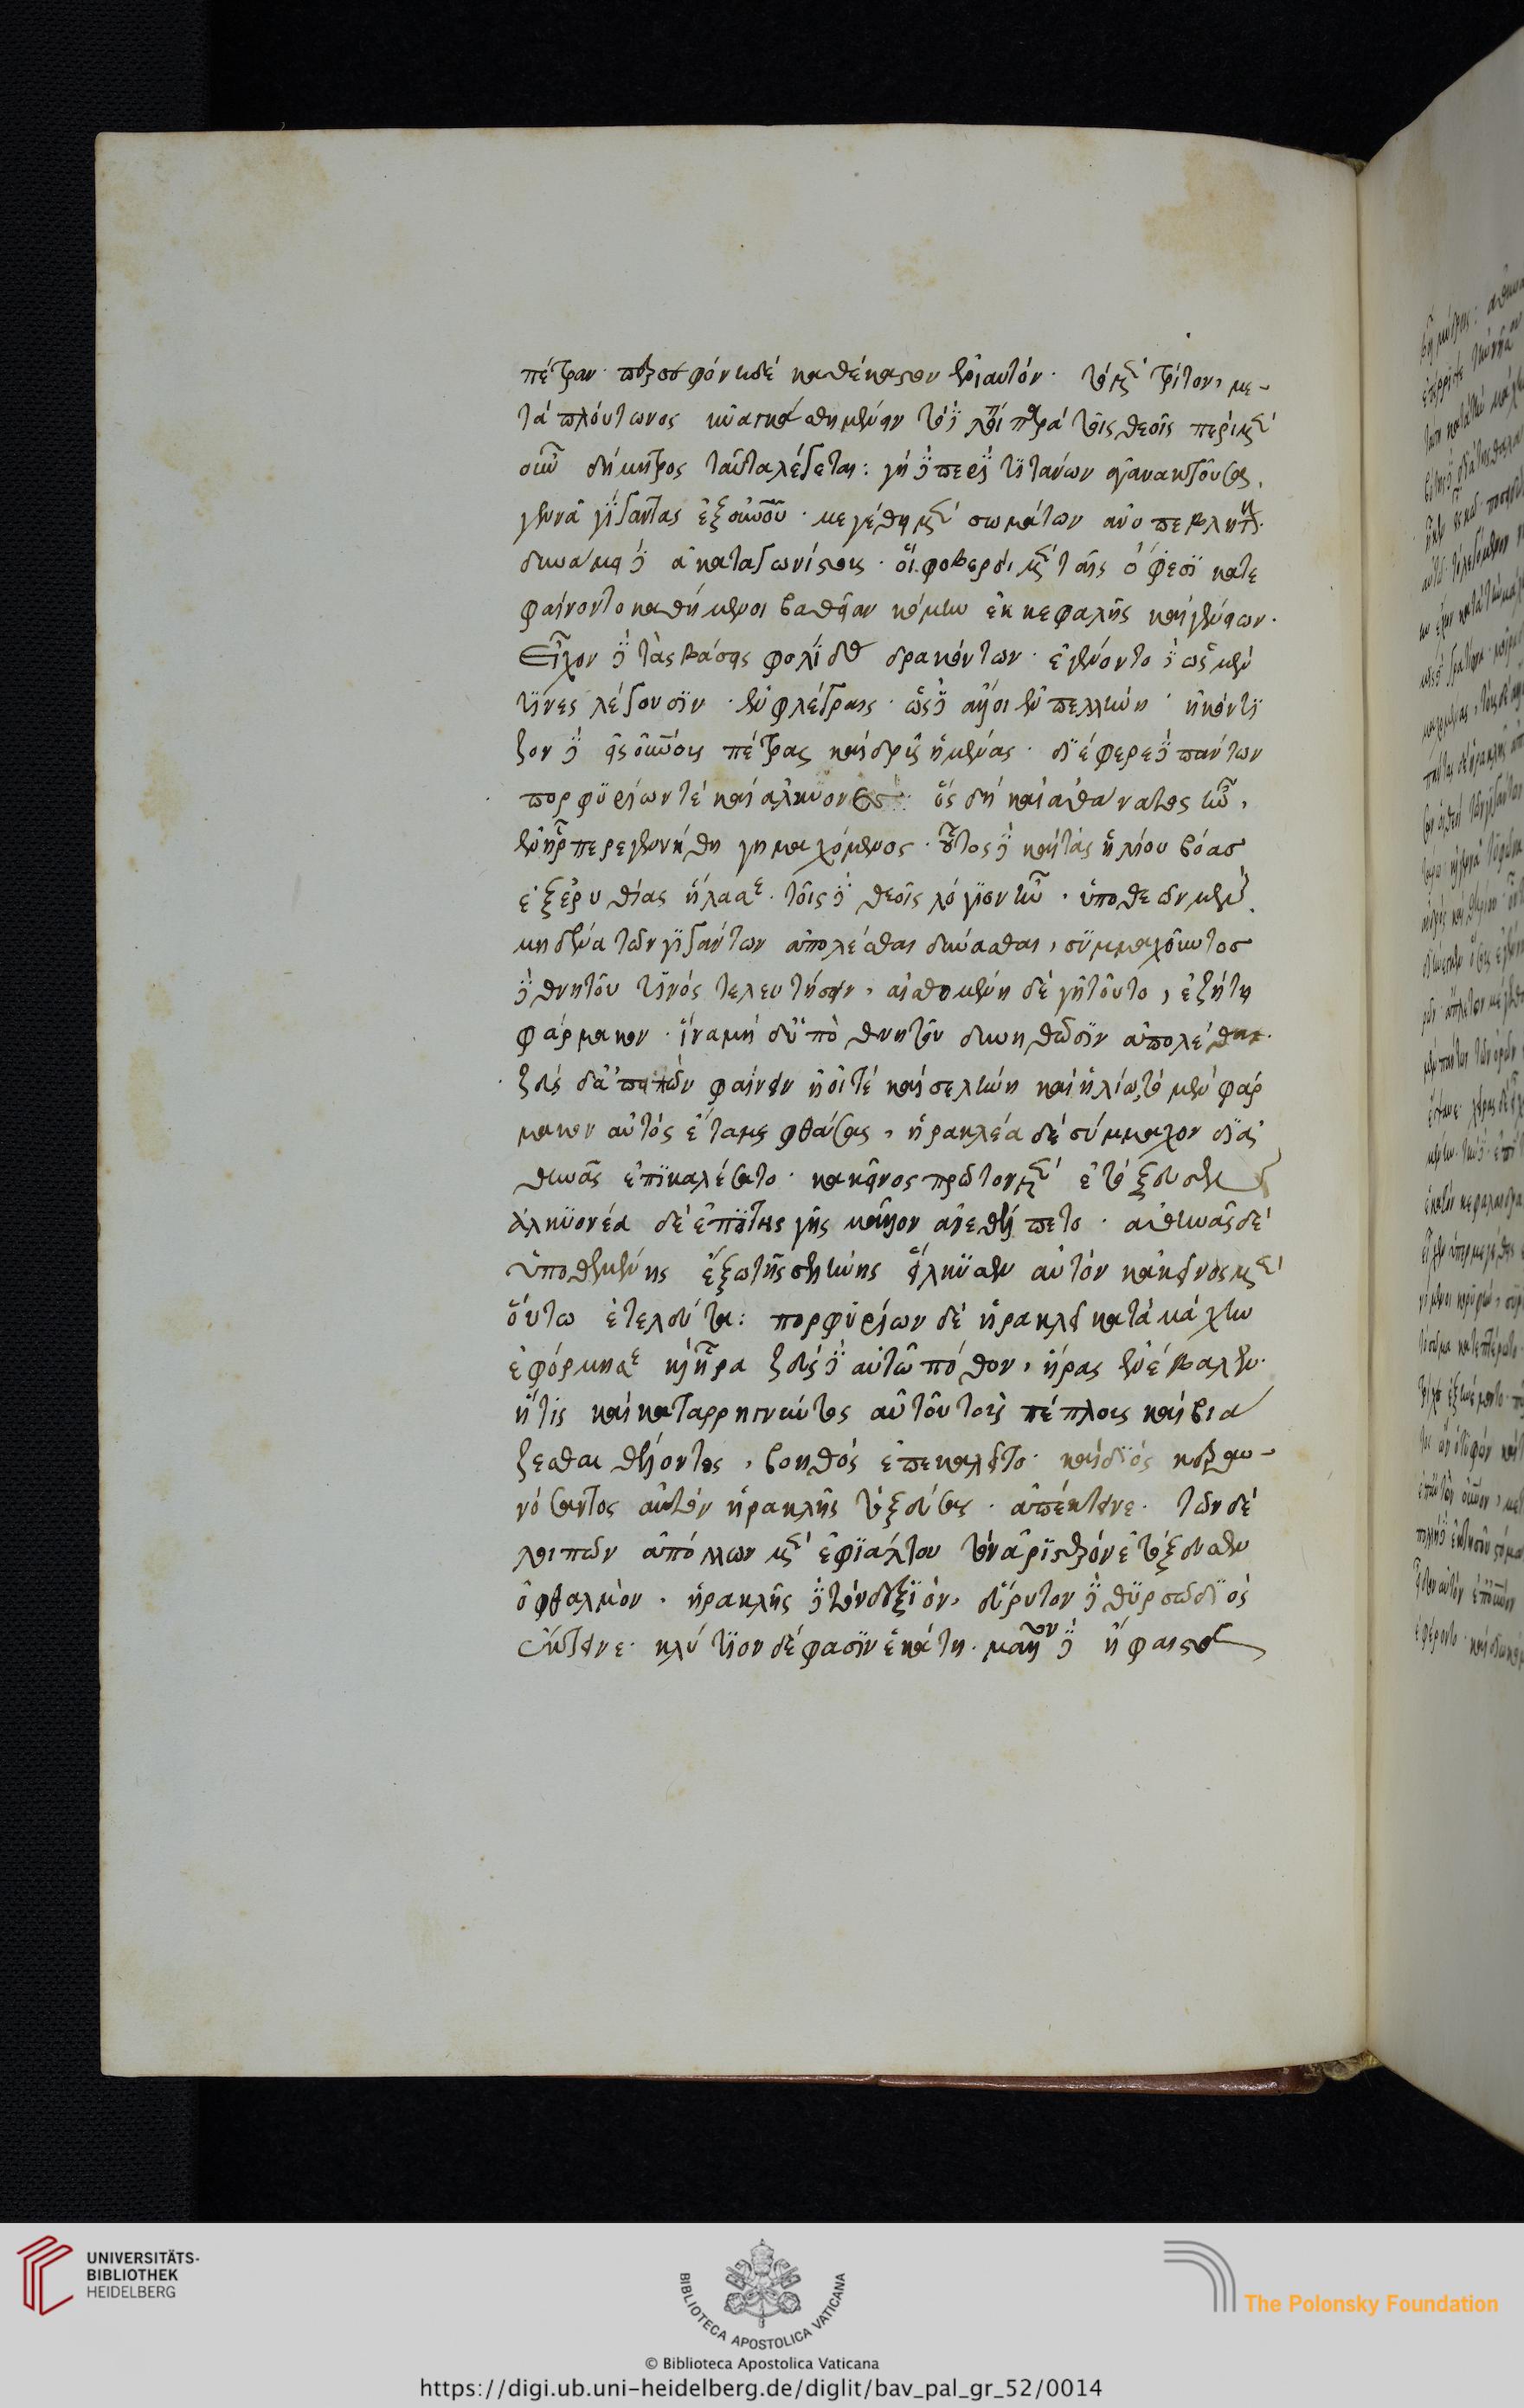 πέτραν· περσεφόνη δὲ καθέκαστον ἐνιαυτόν· τὸ μὲν τρίτον, με-
τὰ πλούτωνος ηὐαγκάσθη μένειν τὸ δὲ λοιπὸν παρὰ τοῖς θεοῖς· περὶ μὲν
οὖν δήμητρος ταῦτα λέγεται: γῆ δὲ περὶ τιτάνων ἀγανακτοῦσα,
γεννᾶ γίγαντας ἐξ οὐρανοῦ· μεγέθει μὲν σωμάτων ἀνυπερβλήτους·
δυνάμει δὲ ἀκαταγωνίστους· οἳ φοβεροὶ μὲν ταῖς ὄψεσι κατε
φαίνοντο καθήμενοι βαθεῖαν κόμην ἐκ κεφαλῆς καὶ γενείων·
Εἶχον δὲ τὰς βάσεις φολίδας δρακόντων· ἐγένοντο δὲ ὡς μὲν
τινες λέγουσιν· ἐν φλέγραις· ὡς δὲ ἄλλοι ἐν πελλήνη· ἠκόντι
ζον δὲ εἰς οὐρανὸν πέτρας καὶ δρῦς ἡμμένας· διέφερε δὲ πάντων
πορφυρίων τε καὶ ἀλκυονεύς· ὃς δὴ καὶ ἀθάνατος ἦν,
ἐν ᾗπερ ἐγεννήθη γῇ μαχόμενος· οὗτος δὲ καὶ τὰς ἡλίου βόας
ἐξ ἐρυθίας ἤλασε· τοῖς δὲ θεοῖς λόγιον ἦν· ὑπὸ θεῶν μὲν
μηδένα τῶν γιγάντων ἀπολέσθαι δύνασθαι, συμμαχοῦντος
δὲ θνητοῦ τινὸς τελευτήσειν· αἰσθομένη δὲ γῆ τοῦτο, ἐζήτει
φάρμακον· ἵνα μὴ δ' ὑπὸ θνητοῦ δυνηθῶσιν ἀπολέσθαι·
ζεὺς δ' ἀπειπὼν φαίνειν ἠοῖ τε καὶ σελήνη καὶ ἡλίω, τὸ μὲν φάρ
μακον αὐτὸς ἔταμε φθάσας, ἡρακλέα δὲ σύμμαχον δι'
ἀθηνᾶς ἐπικαλέσατο· κἀκεῖνος πρῶτον μὲν ἐτόξευσεν
ἀλκυονέα δὲ ἐπὶ τῆς γῆς μᾶλλον ἀνεθάλπετο· ἀθηνᾶς δὲ
ὑποθεμένης ἔξω τῆς σελήνης εἵλκυσεν αὐτὸν κἀκεῖνος μὲν
οὕτω ἐτελεύτα: πορφυρίων δὲ ἡρακλεῖ κατὰ μάχην
ἐφόρμησε καὶ ἥρα ζεὺς δὲ αὐτῶ πόθον, ἥρας ἐνέβαλεν·
ἥτις καὶ καταρρηγνύντος αὐτοῦ τοὺς πέπλους καὶ βιά
ζεσθαι θέλοντος, βοηθοὺς ἐπεκαλεῖτο· καὶ διὸς κεραυ-
νώσαντος αὐτὸν ἡρακλῆς τοξεύσας· ἀπέκτεινε· τῶν δὲ
λοιπῶν ἀπόλλων μὲν ἐφιάλτου τὸν ἀριστερὸν ἐτόξευσεν
ὀφθαλμὸν· ἡρακλῆς δὲ τὸν δεξιόν, εὔρυτον δὲ θύρσω διὸς
ἔκτεινε· κλύτιον δέ φασιν ἑκάτη· μᾶλλον δὲ ἥφαιστος
UNIVERSITÄTS-
BIBLIOTHEK
HEIDELBERG
BIBLIOTECA APOSTOLICA VATICANA
The Polonsky Foundation
© Biblioteca Apostolica Vaticana
https://digi.ub.uni-heidelberg.de/diglit/bav_pal_gr_52/0014